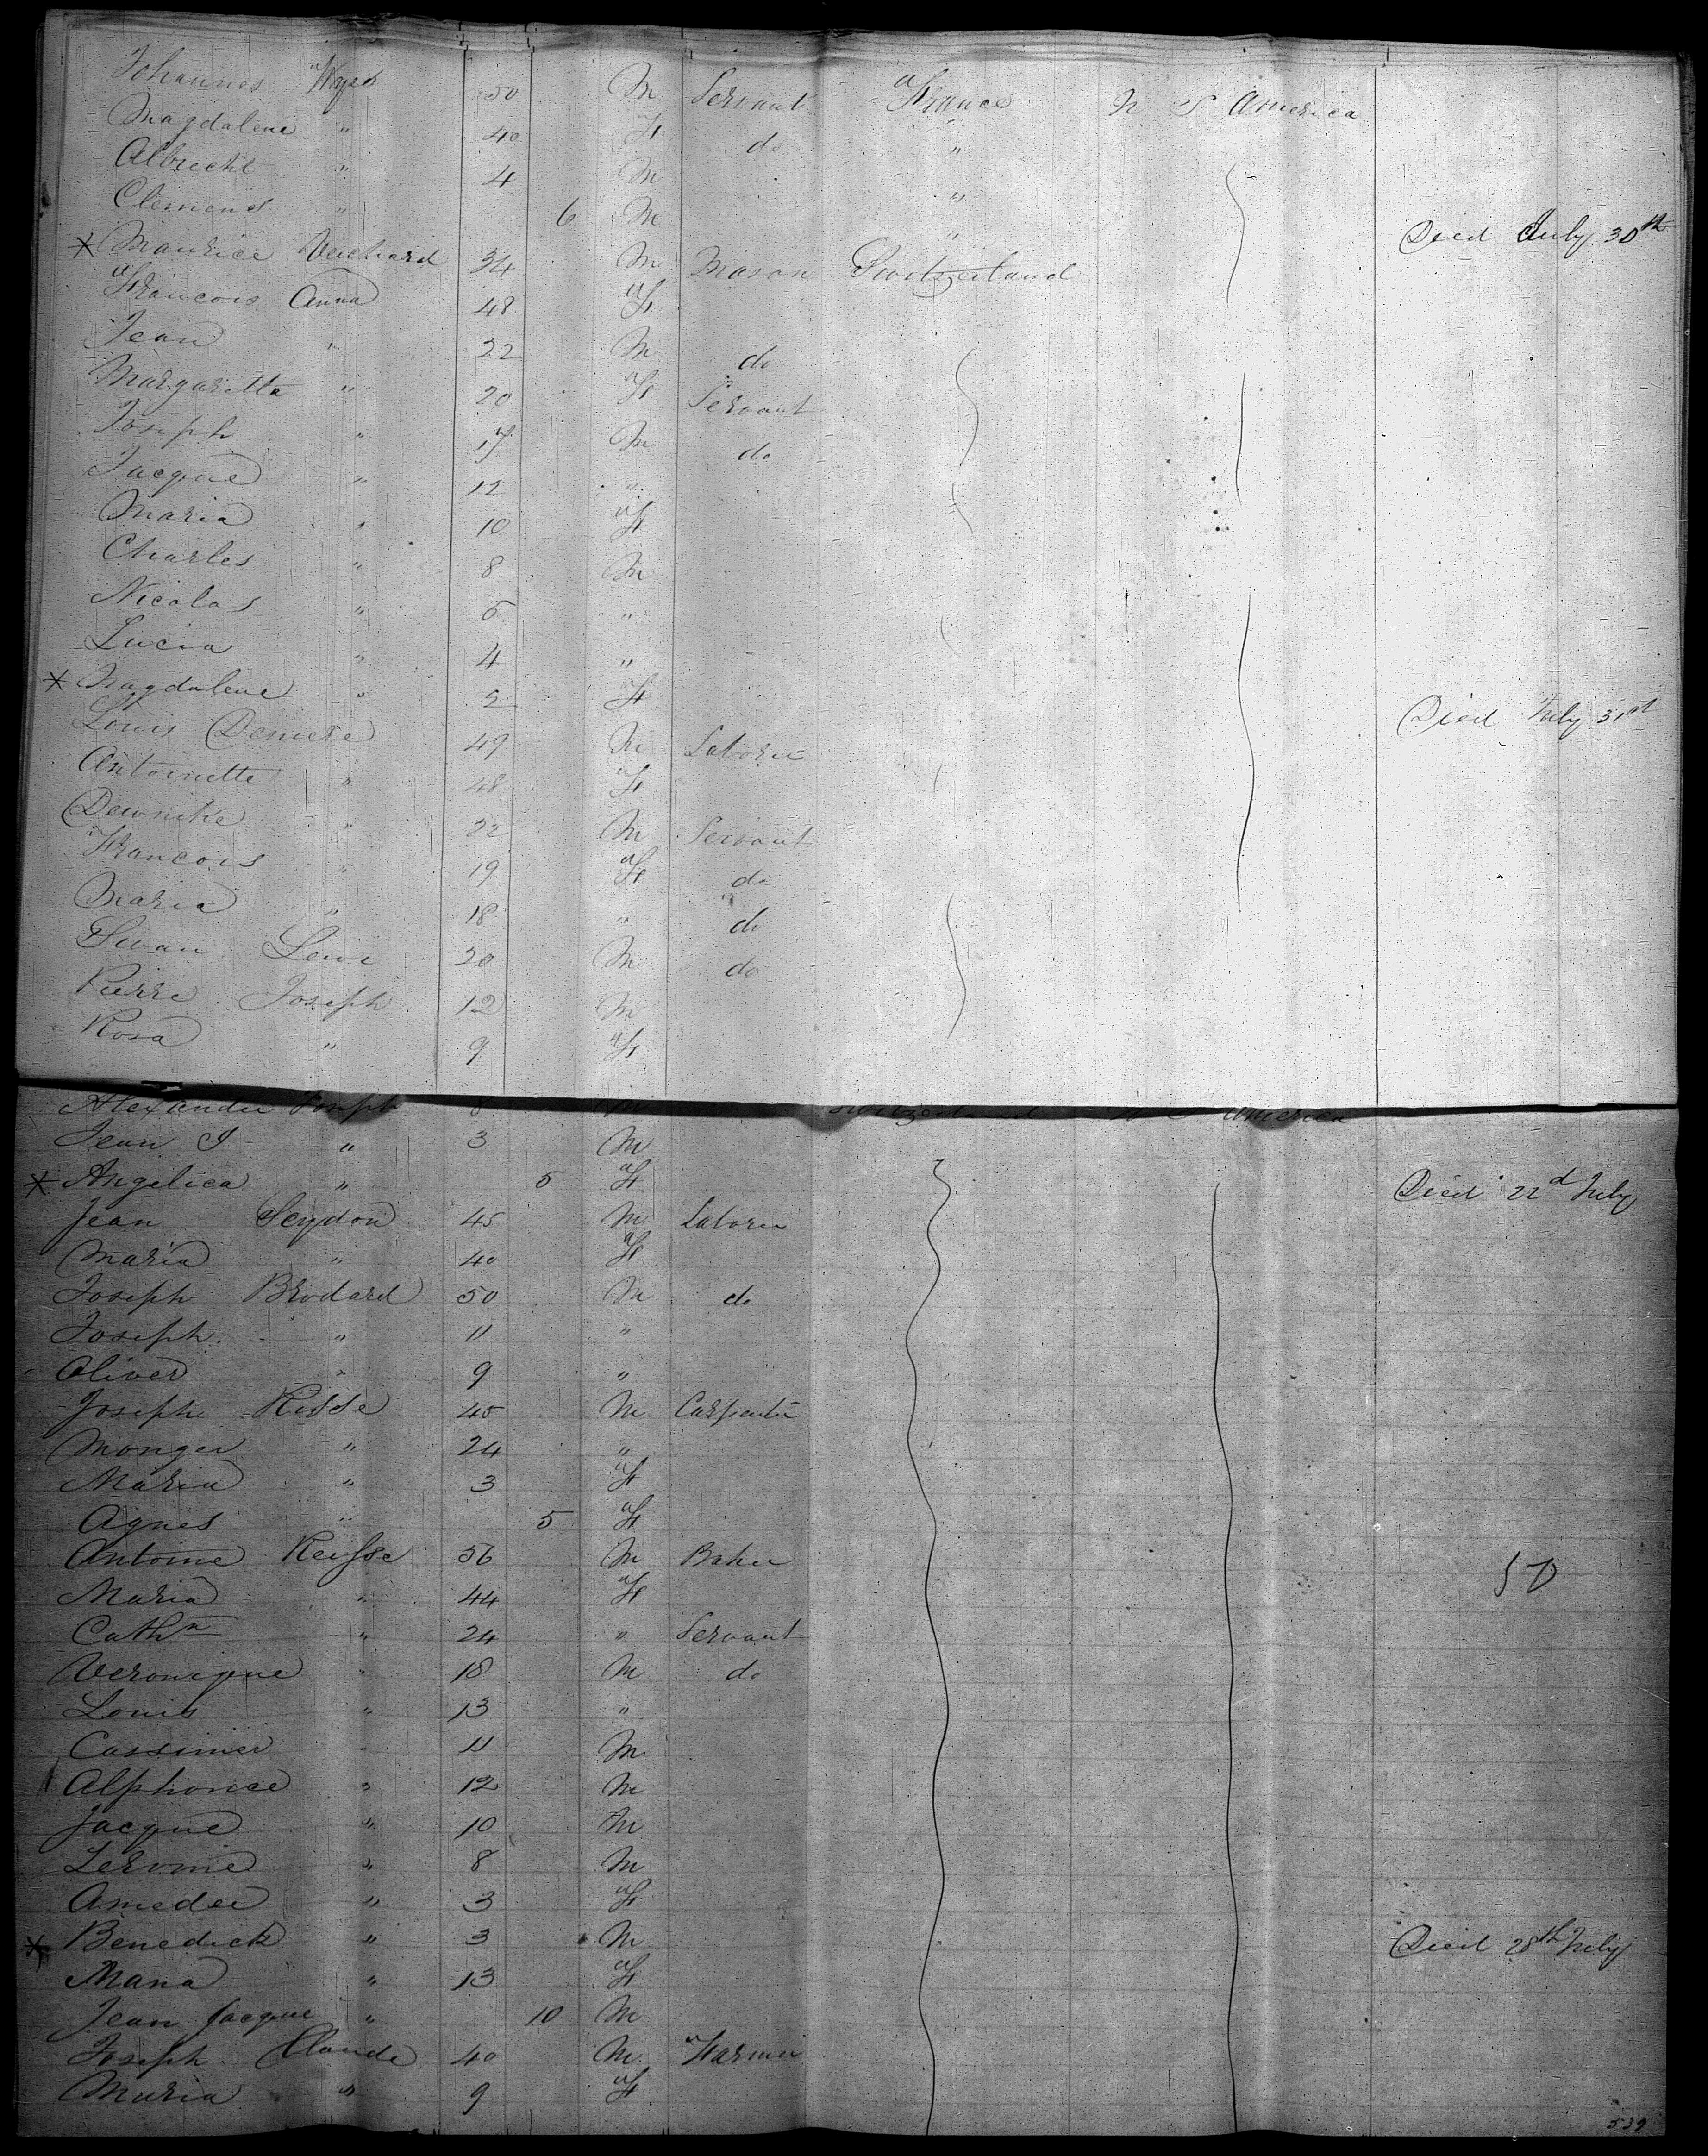 Johannes 50 M Servant France N S America
Magdalene " 40 F do "
Albrecht " 4 M "
Clemens " 6 M "
* Maurice 34 M Mason Switzerland Died July 30th
Francois Anna 48 F
Jean " 22 M do
Margaritta " 20 F Servant
Joseph " 17 M do
Jacque " 12 "
Maria " 10 F
Charles " 8 M
Nicolas " 5 "
Lucia " 4 "
* Magdalene " 2 F Died July 31st
Louis Demiere 49 M Laborer
Antoinette " 48 F
" 22 M Servant
Francois " 19 F do
Maria " 18 " do
20 M do
Pierre Joseph 12 M
Rosa " 9 F
Alexander Joseph 8 M Switzerland N S America
Jean J " 3 M
* Angelica " 5 F Died 22d July
Jean Seydon 45 M Laborer
Maria " 40 F
Joseph Brodard 50 M do
Joseph " 11 "
Oliver " 9 "
Joseph Risse 45 M Carpenter
Monger " 24 "
Maria " 3 F
Agnes " 5 F
Antoine Reisse 56 M Baker
Maria " 44 F
Cathn " 24 " Servant
Veronique " 18 M do
Louis " 13 "
Cassimer " 11 M
Alphonse " 12 M
Jacque " 10 M
Jerome " 8 M
Amedee " 3 F
* Benedick " 3 M Died 28th July
Maria " 13 F
Jean Jacque " 10 M
Joseph Claude 40 M Farmer
Maria " 9 F
539